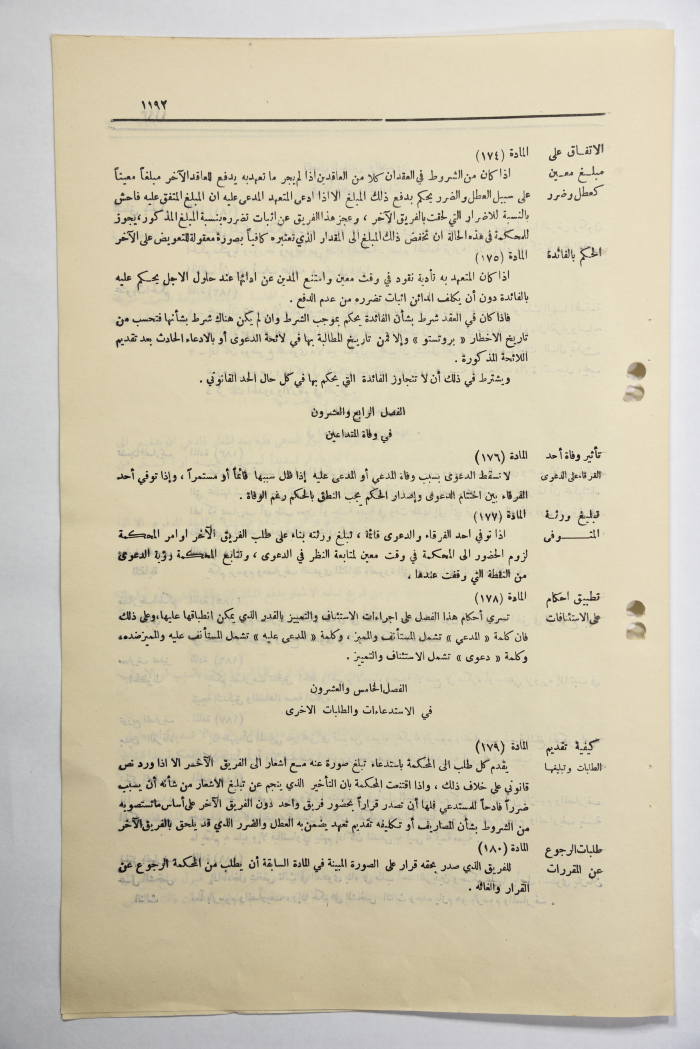 ١١٩٢
الاتفاق على المادة (١٧٤)
مبلغ معين اذا كان من الشروط في العقد ان كلا من العاقدين اذا لم يجر ما تعهد به يدفع للعاقد الآخر مبلغاً معيناً
كعطل وضرر على سبيل العطل والضرر يحكم بدفع ذلك المبلغ الا اذا ادعى المتعهد المدعى عليه ان المبلغ المتفق عليه فاحش
بالنسبة للاضرار التي لحقت بالفريق الآخر ، وعجز هذا الفريق عن اثبات تضرره بنسبة المبلغ المذكور ، يجوز
للمحكمة في هذه الحالة ان تخفض ذلك المبلغ الى المقدار الذي تعتبره كافياً بصورة معقولة للتعويض على الآخر
الحكم بالفائدة المادة (١٧٥)
اذا كان المتعهد به تأدية نقود في وقت معين وامتنع المدين عن ادائها عند حلول الاجل يحكم عليه
بالفائدة دون أن يكلف الدائن اثبات تضرره من عدم الدفع .
فاذا كان في العقد شرط بشأن الفائدة يحكم بموجب الشرط وان لم يكن هناك شرط بشأنها فتحسب من
تاريخ الاخطار « بروتستو » والا فمن تاريخ المطالبة بها في لائحة الدعوى أو بالادعاء الحادث بعد تقديم
اللائحة المذكورة .
ويشترط في ذلك أن لا تتجاوز الفائدة التي يحكم بها في كل حال الحد القانوني .
الفصل الرابع والعشرون
في وفاة المتداعين
تأثير وفاة أحد المادة (١٧٦)
الفرقاء على الدعوى لا تسقط الدعوى بسبب وفاة المدعي أو المدعى عليه إذا ظل سببها قائماً أو مستمراً ، وإذا توفي أحد
الفرقاء بين اختتام الدعوى وإصدار الحكم يجب النطق بالحكم رغم الوفاة .
تبليغ ورثة المادة (١٧٧)
المتوفى اذا توفي احد الفرقاء والدعوى قائمة ، تبلغ ورثته بناء على طلب الفريق الآخر اوامر المحكمة
لزوم الحضور الى المحكمة في وقت معين لمتابعة النظر في الدعوى ، وتتابع المحكمة رؤية الدعوى
من النقطة التي وقفت عندها .
تطبيق احكام المادة (١٧٨)
على الاستئنافات تسري أحكام هذا الفصل على اجراءات الاستئناف والتمييز بالقدر الذي يمكن انطباقها عليها ، وعلى ذلك
فان كلمة « المدعي » تشمل المستأنف والمميز ، وكلمة « المدعى عليه » تشمل المستأنف عليه والمميز ضده ،
وكلمة « دعوى » تشمل الاستئناف والتمييز .
الفصل الخامس والعشرون
في الاستدعاءات والطلبات الاخرى
كيفية تقديم المادة (١٧٩)
الطلبات وتبليغها يقدم كل طلب الى المحكمة باستدعاء تبلغ صورة عنه مع اشعار الى الفريق الآخر الا اذا ورد نص
قانوني على خلاف ذلك ، واذا اقتنعت المحكمة بان التأخير الذي ينجم عن تبليغ الأشعار من شأنه أن يسبب
ضرراً فادحاً للمستدعي فلها أن تصدر قراراً بحضور فريق واحد دون الفريق الآخر على أساس ما تستصوبه
من الشروط بشأن المصاريف أو تكليفه تقديم تعهد يضمن به العطل والضرر الذي قد يلحق بالفريق الآخر
طلبات الرجوع المادة (١٨٠)
عن المقررات للفريق الذي صدر بحقه قرار على الصورة المبينة في المادة السابقة أن يطلب من المحكمة الرجوع عن
القرار والغائه .